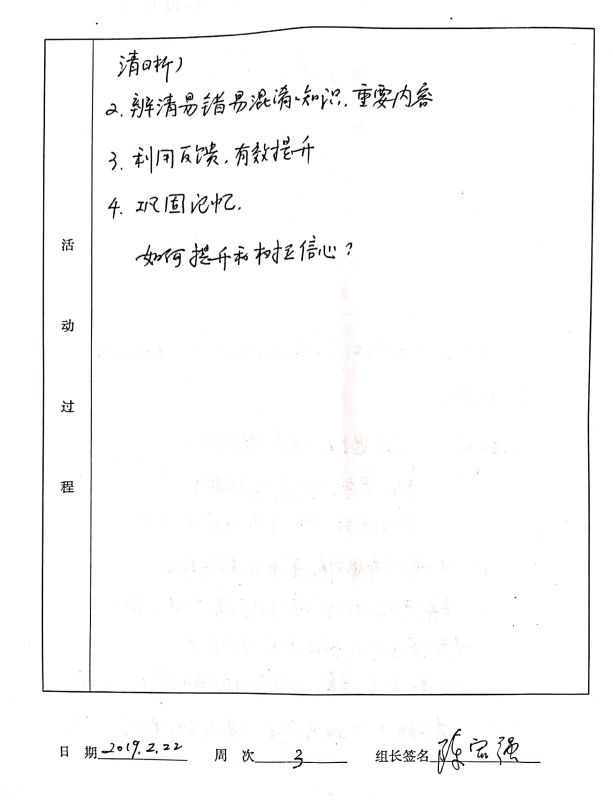 清晰）
2. 辨清易错易混淆、知识，重要内容
3. 利用反馈，有效提升
4. 巩固记忆.
如何提升和树立信心？
活动过程
日 期 2019.2.22 周 次 3 组长签名 陈宏强